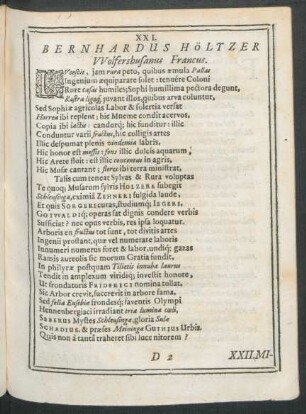 XXI.
BERNHARDUS HÖLTZER
Wolfersbusanus Francus.
jam rura peto, quibus æmula Pallas
Ingenium æquiparare solet: tenuêre Coloni
Rure casas humiles; Sophi humillima pectora degunt,
Rastra ligoq; juvant illos, quibus arva coluntur,
Sed Sophiæ agricolas Labor & solertia versat
Horrea ibi replent; hic Mneme condit acervos.
Copia ibi lactis: candorq; hic funditur: illic
Conduntur varii fructus, hic colligis artes
Illic despumat plenis vindemia labris.
Hic honor est messis: fons illic dulcis aquarum,
Hic Arete fluit: est illic concentus in agris,
Hic Musæ cantant: flores ibi terra ministrat.
Talis cum teneat Sylvas & Rura voluptas
Te quoq; Musarum sylvis HOLZERE subegit
Schleusinga, eximii ZEHNERI fulgida laude,
Et quis SORGERI curas, studiumq; JEGERI,
GOTWALDIq; operas sat dignis condere verbis
Sufficiat? nec opes verbis, res ipsa loquatur.
Arboris en fructus tot sunt, tot divitis artes
Ingenii prostant, quæ vel numerare laboris
Innumeri numerus foret & labor, undiq; gazas
Ramis aureolis sic morum Gratia fundit,
In philyræ postquam Tilietis innuba laurus
Tendit in amplexum viridiq; investit honore,
Ut frondatoris FRIDERICI nomina tollat.
Sic Arbor crevit, succrevit in arbore fama.
Sed folia Eusebiæ frondesq; faventis Olympi
Hennenbergiaci irradiant tria lumina cœli,
SEBERUS Mystes Schleusingæ, gloria Sulæ
SCHADIUS, & præses Meininga GUTHJUS Urbis.
Quis non á tantâ traheret sibi luce nitorem?
D 2
XXII. MI-